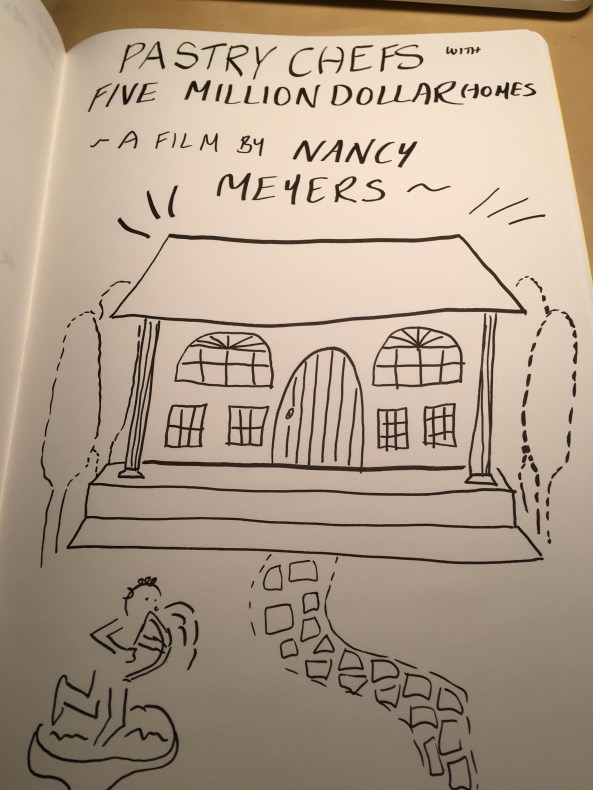 PASTRY CHEFS WITH
FIVE MILLION DOLLAR HOMES
~ A FILM BY NANCY
MEYERS ~